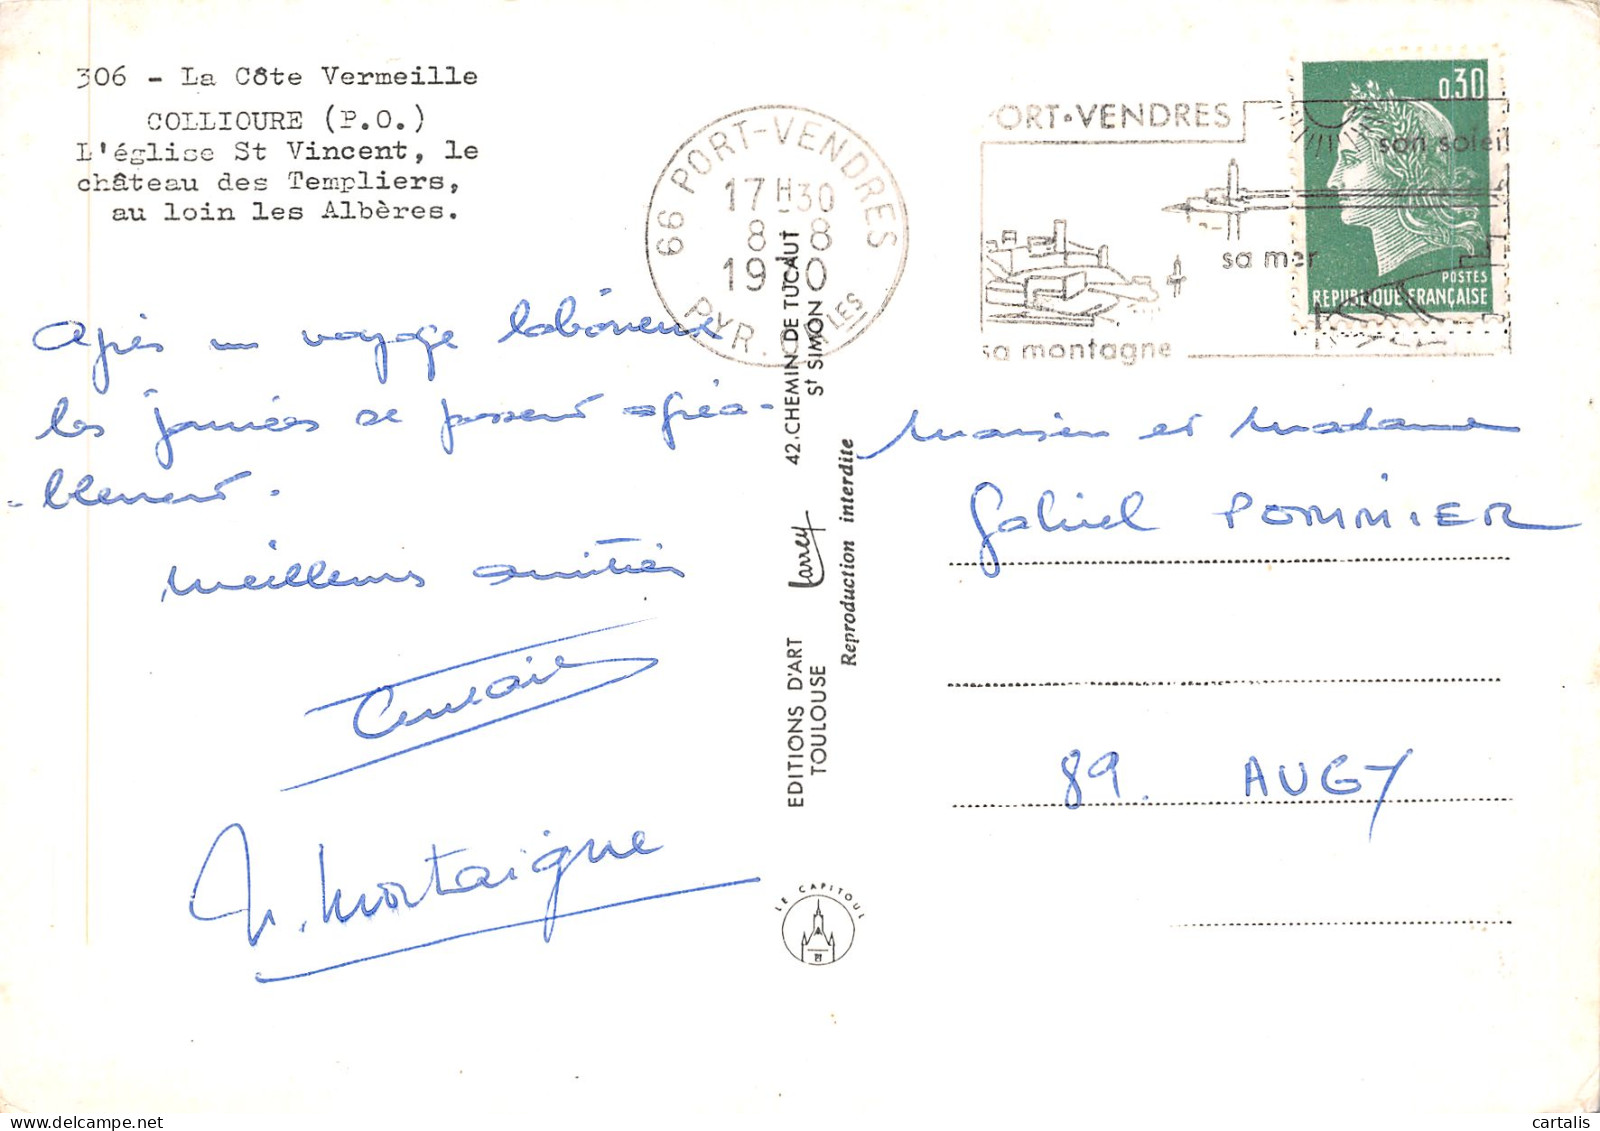 306 - La Côte Vermeille
COLLIOURE (P.O.)
L'église St Vincent, le
château des Templiers,
au loin les Albères.
66 PORT-VENDRES
17H30
8 8
1970
PYR. OR LES
PORT•VENDRES
son soleil
sa mer
sa montagne
0,30
POSTES
REPUBLIQUE FRANÇAISE
Après un voyage laborieux
les journées se passent agréa-
-blement.
Meilleures amitiés
M. Montaigne
EDITIONS D'ART
TOULOUSE
Larrey
42.CHEMIN DE TUCAUT
St SIMON
Reproduction interdite
LE CAPITOUL
Monsieur et Madame
Gabriel POMMIER
89. AUGY
cartalis